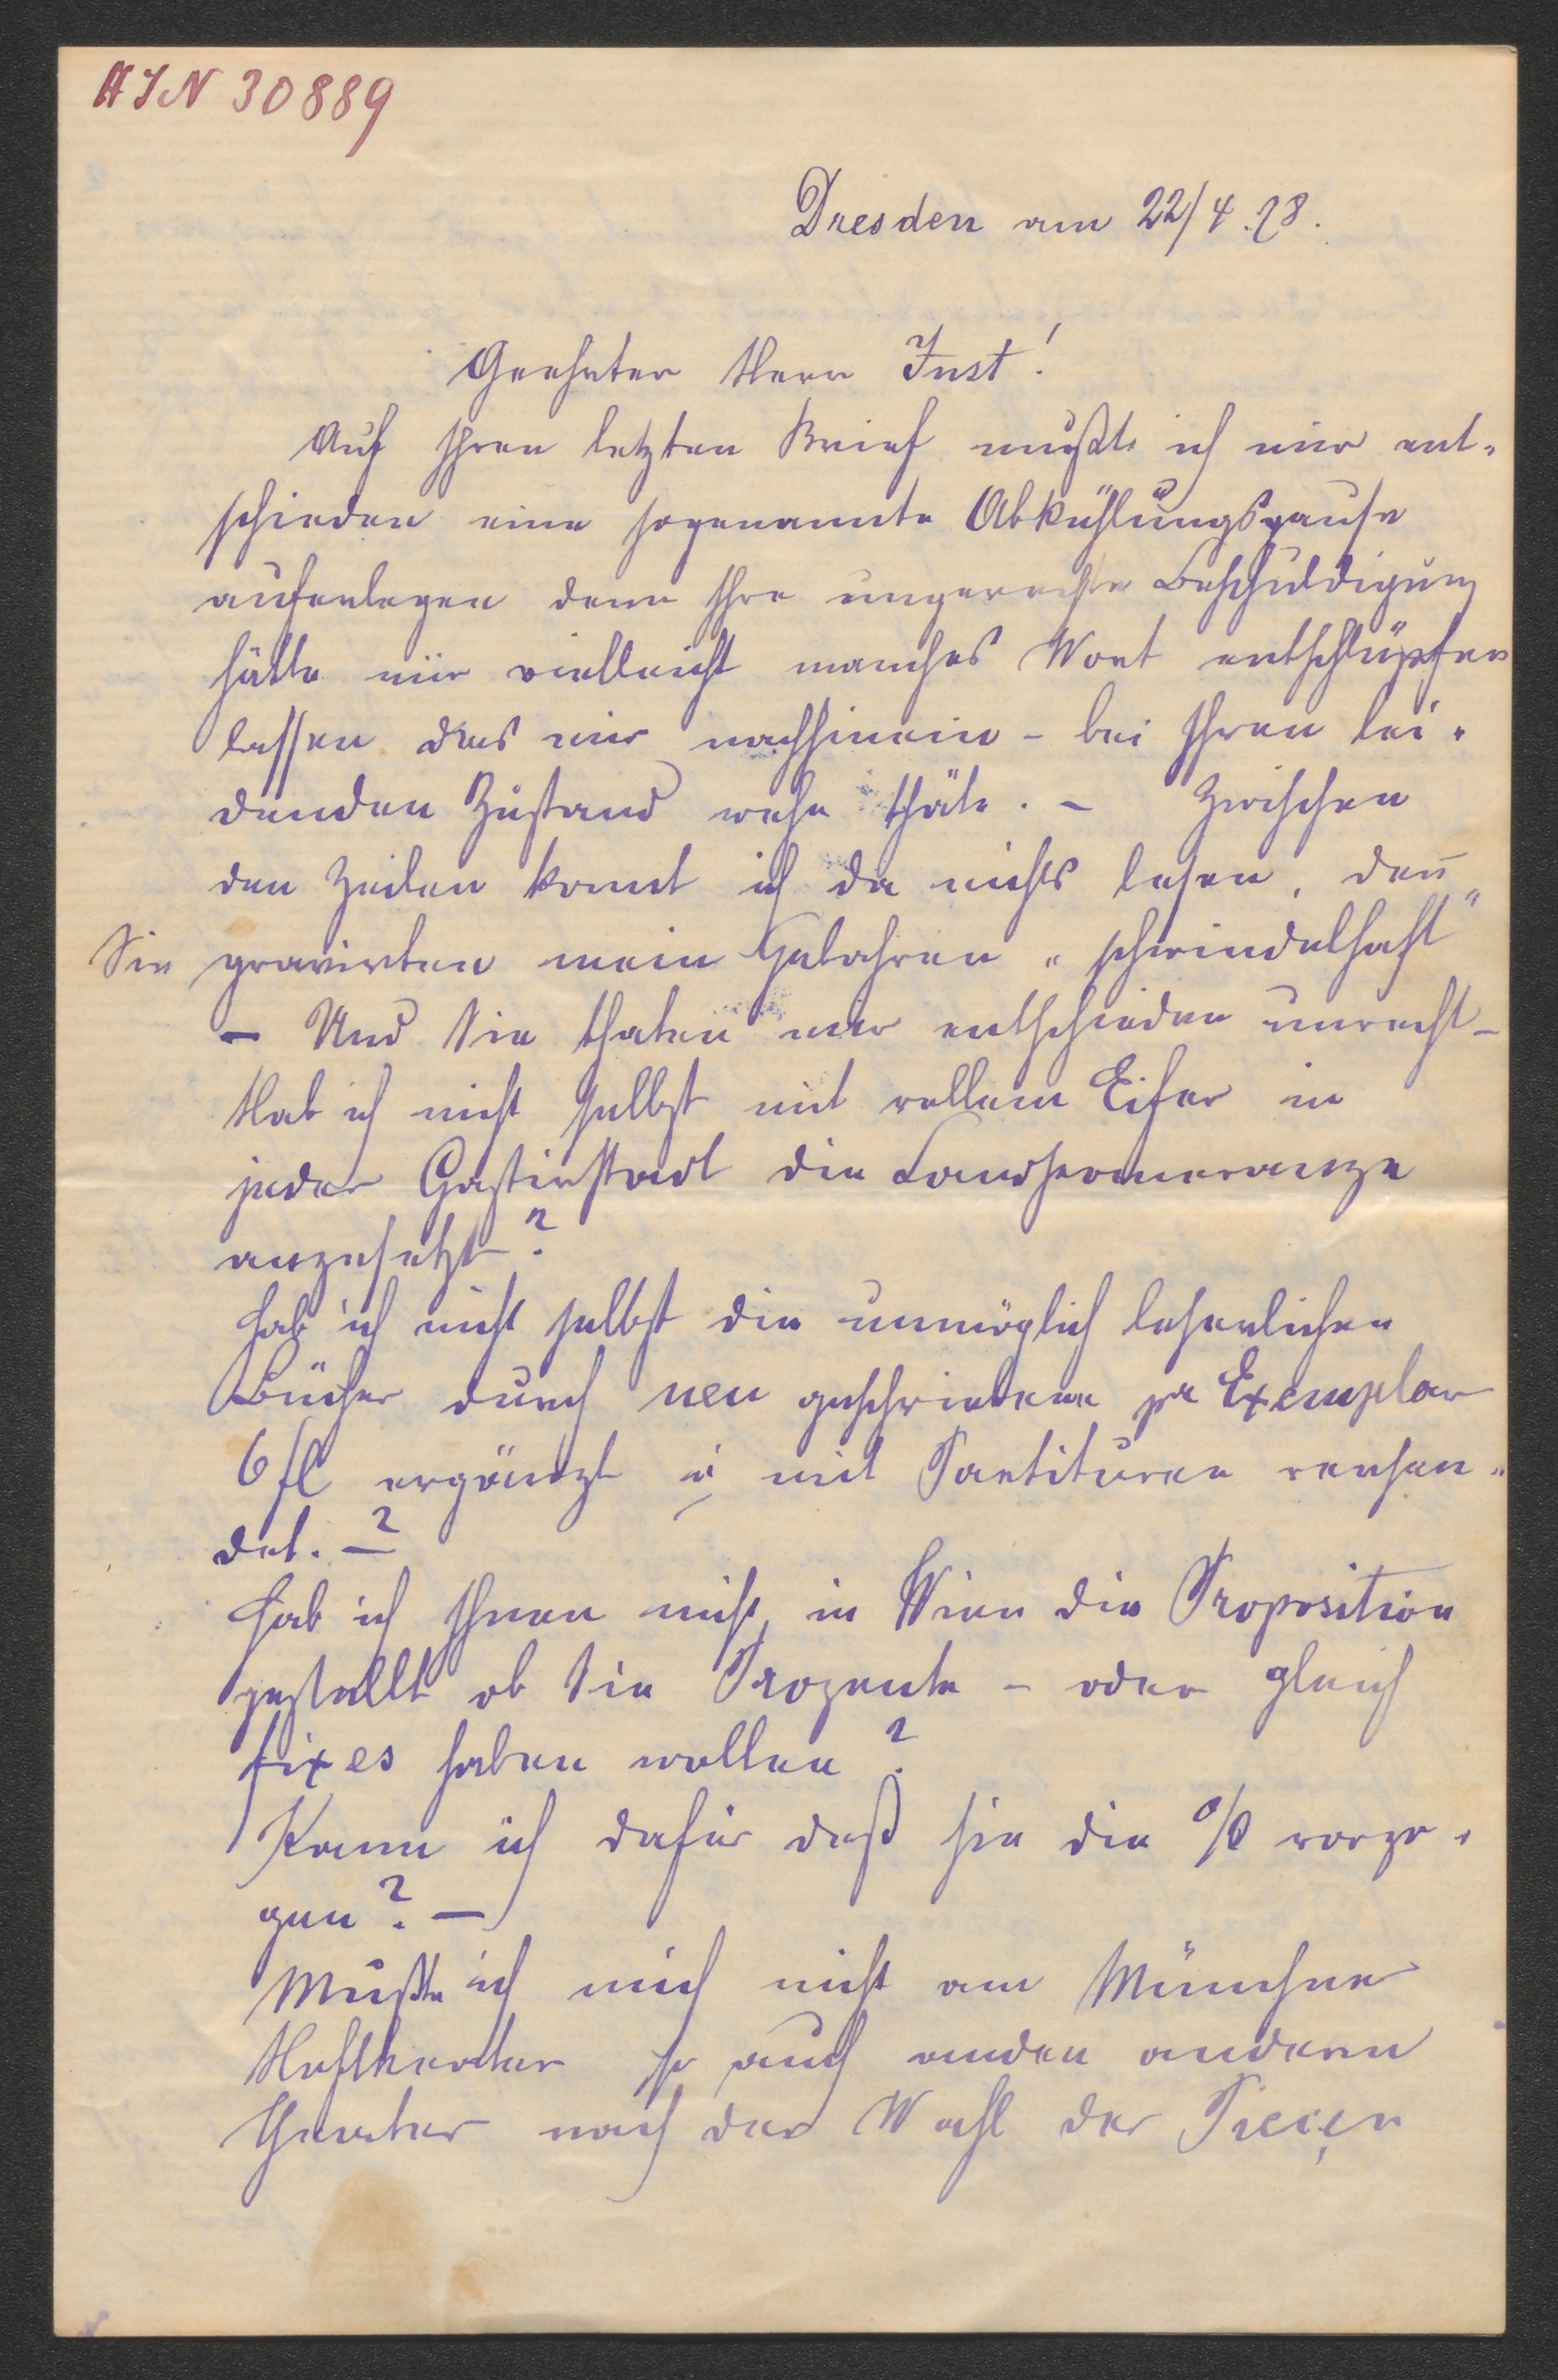 HIN 30889
Dresden am 22/4.78.
Geehrter Herr Just!
Auf Ihren letzten Brief mußte ich mir ent-
schieden eine sogenannte Abkühlungspause
auferlegen denn Ihre ungerechte Beschuldigung
hätte mir vielleicht manches Wort entschlüpfen
lassen das mir nachhinein - bei Ihren lei-
denden Zustand wehe thäte. - Zwischen
den Zeilen konnt ich da nichts lesen, deñ
Sie gravirten mein Gebahren „schwindelhaft"
- Und Sie thaten mir entschieden unrecht -
Hab ich nicht selbst mit vollem Eifer in
jeder Gastirstadt die Landpomeranze
angesetzt?
Hab ich nicht selbst die unmöglich leserlichen
Bücher durch neu geschriebene pr Exemplar
6 fl ergänzt u mit Partituren versen-
det. - ?
Hab ich Ihnen nicht in Wien die Proposition
gestellt ob Sie Prozente - oder gleich
fixes haben wollen?
Kann ich dafür daß sie die % vorzo-
gen? -
Mußte ich mich nicht am Münchner
Hoftheater so auch anden anderen
Theater nach der Wahl der Pieçen